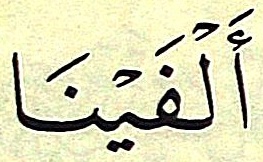 أَلْفَيْنَا